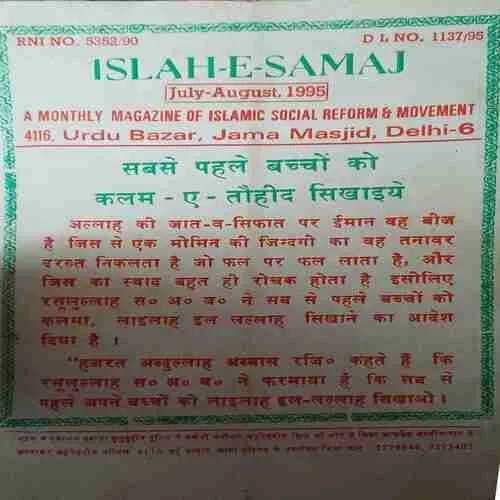 RNI NO. 5352/90 D L NO. 1137/95
ISLAH-E-SAMAJ
July-August, 1995
A MONTHLY MAGAZINE OF ISLAMIC SOCIAL REFORM & MOVEMENT
4116, Urdu Bazar, Jama Masjid, Delhi-6
सबसे पहले बच्चों को
कलम - ए - तौहीद सिखाइये
अल्लाह की जात-व-सिफात पर ईमान वह बीज
है जिस से एक मोमिन की जिन्दगी का वह तनावर
दरख्त निकलता है जो फल पर फल लाता है, और
जिस का स्वाद बहुत ही रोचक होता है इसीलिए
रसूलुल्लाह स० अ० व० ने सब से पहले बच्चों को
कलमा, लाइलाह इल लल्लाह सिखाने का आदेश
दिया है ।
"हजरत अब्दुल्लाह अब्बास रजि० कहते हैं कि
रसूलुल्लाह स० अ० व० ने फरमाया है कि सब से
पहले अपने बच्चों को लाइलाह इल-लल्लाह सिखाओ ।